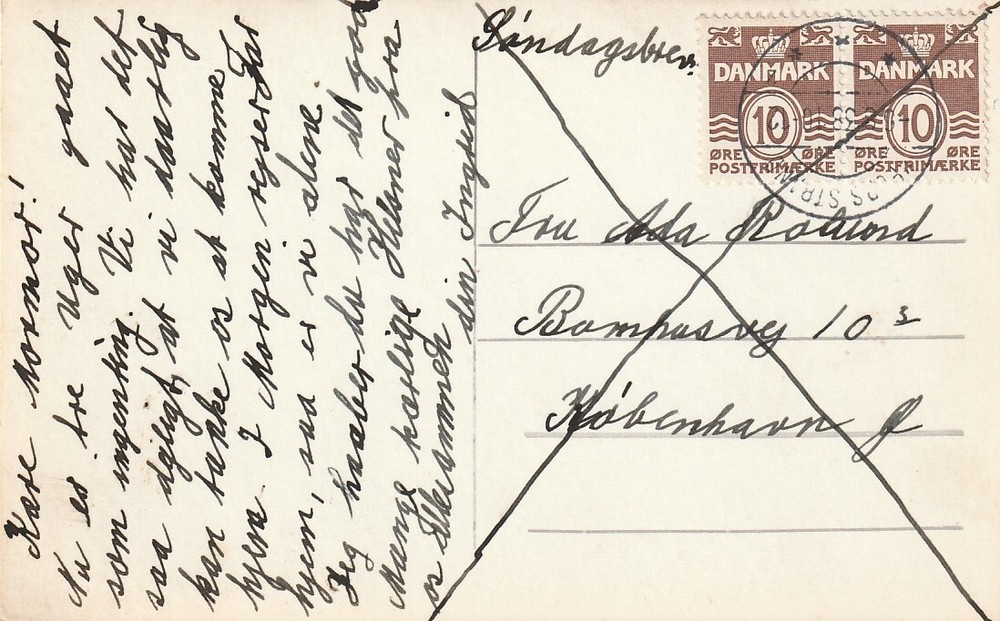 Kære Mormor!
Nu er tre Uger gaaet
som ingenting. Vi har det
saa dejligt, at vi daarlig
kan tænke os at komme
hjem. I Morgen rejser Far
hjem, saa er vi alene.
Jeg haaber du har det godt
Mange kærlige Hilsner fra
os Allesammen din Ingrid
Søndagsbrev.
DANMARK
10
ØRE ØRE
POSTFRIMÆRKE
DANMARK
10
ØRE ØRE
POSTFRIMÆRKE
Fru Ada
Bomhusvej 10 3
København Ø